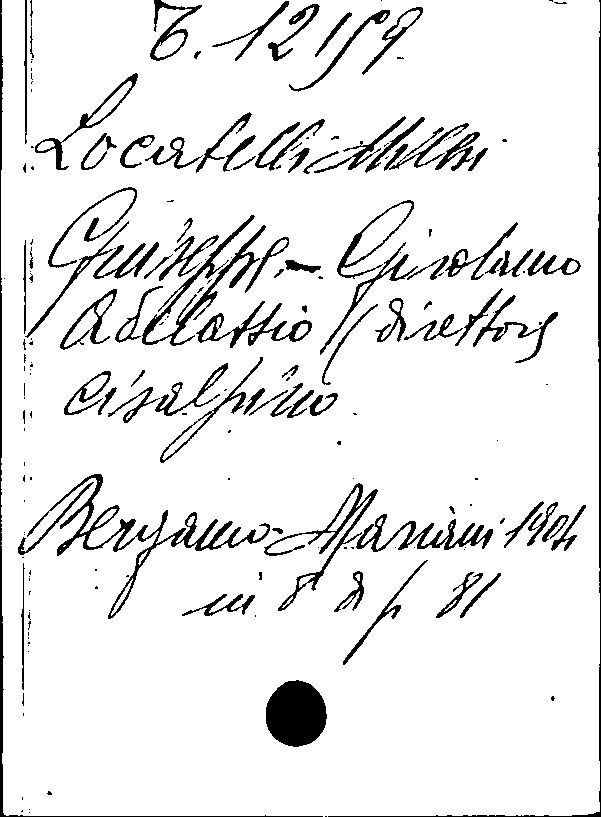 T. 12159
Locatelli Milesi
Giuseppe. - Girolamo
Adelassio (direttore
cisalpino
Bergamo - Mariani 1904
in 8° di p 81